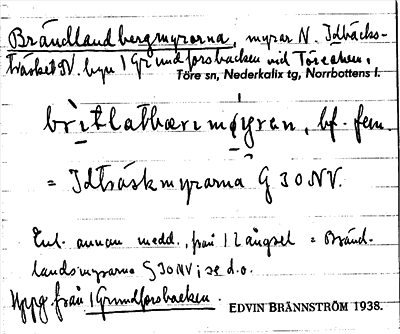 Brändlandbergmyrorna, myrar N. Idbäcks-
träsket NV. byn 1 Grundforsbacken vid Töreälven,
Töre sn, Nederkalix tg, Norrbottens l.
bf. fem.
= Idträskmyrarna G 30 NV.
Enl. annan medd. från 1 Långsel = Bränd-
landsmyrarna G 30 NV; se d.o.
Uppg. från 1 Grundforsbacken.
EDVIN BRÄNNSTRÖM 1938.